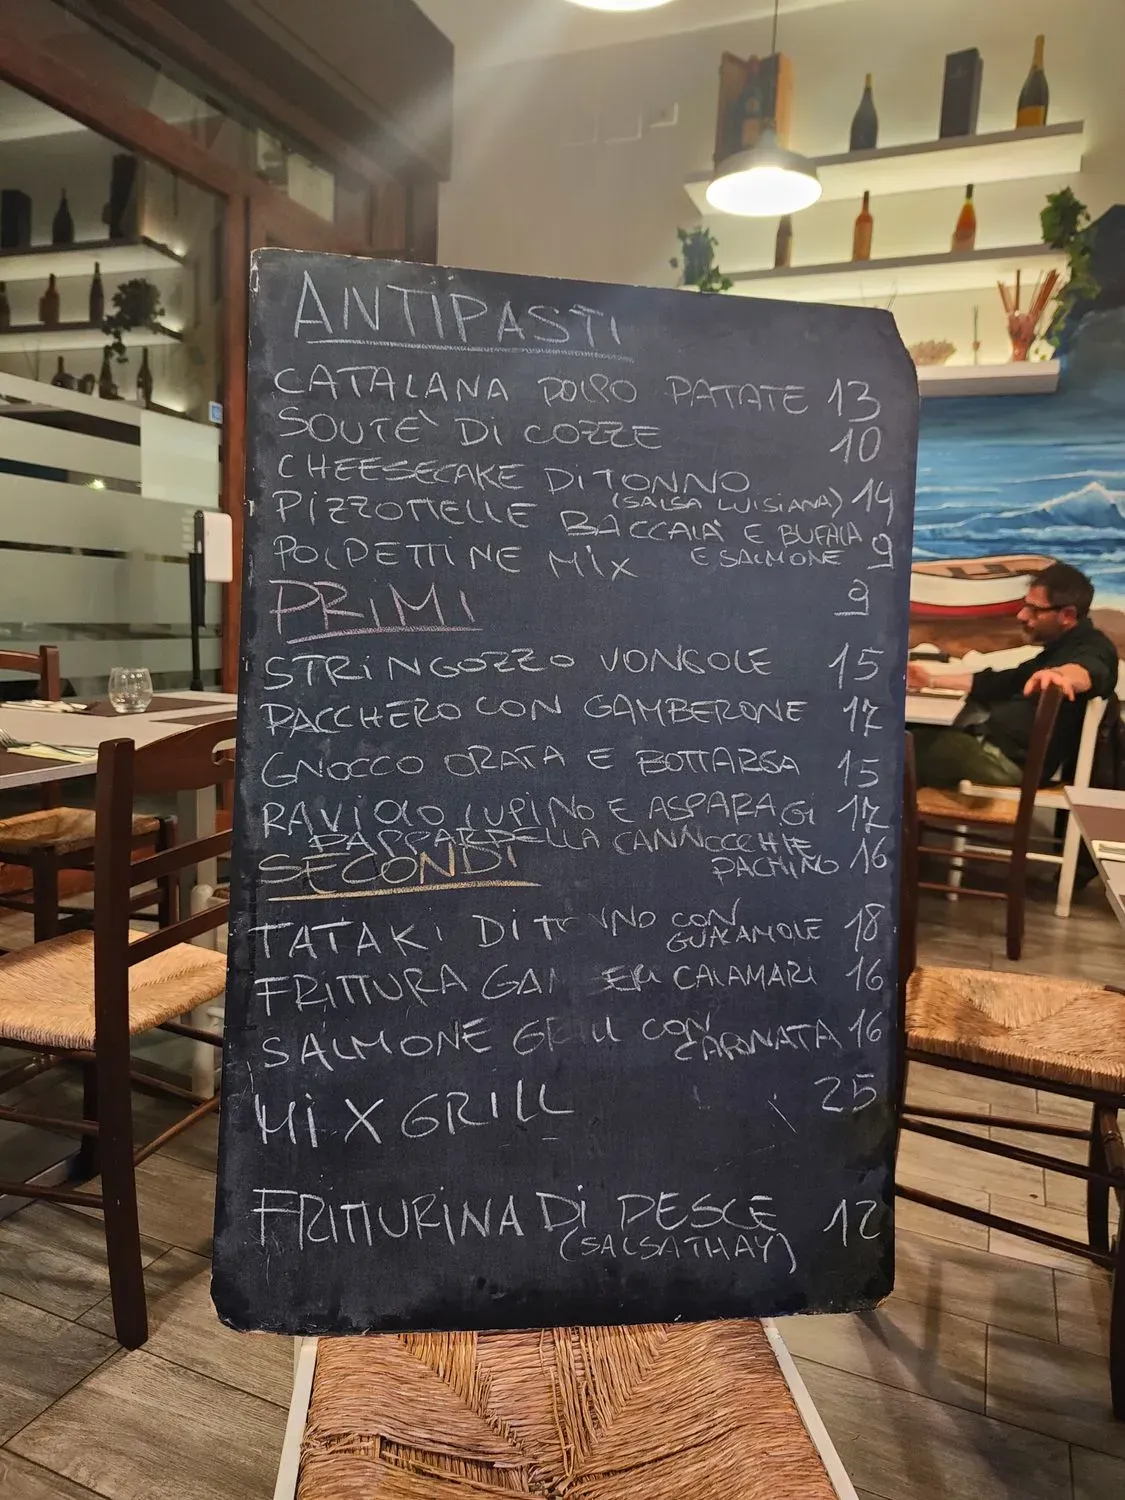 ANTIPASTI
CATALANA POLPO PATATE 13
SOUTÈ DI COZZE 10
CHEESECAKE DI TONNO
(SALSA LUISIANA) 14
PIZZOTTELLE BACCALA' E BUFALA
E SALMONE 9
POLPETTINE MIX 9
PRIMI
STRINGOZZO VONGOLE 15
PACCHERO CON GAMBERONE 17
GNOCCO ORATA E BOTTARGA 15
RAVIOLO LUPINO E ASPARAGI 17
PAPPARDELLA CANNOCCHIE
PACHINO 16
SECONDI
TATAKI DI TONNO CON
GUACAMOLE 18
FRITTURA CALAMARI 16
SALMONE GRILL CON
CARNATA 16
MIX GRILL 25
FRITTURINA DI PESCE 12
(SALSA THAY)